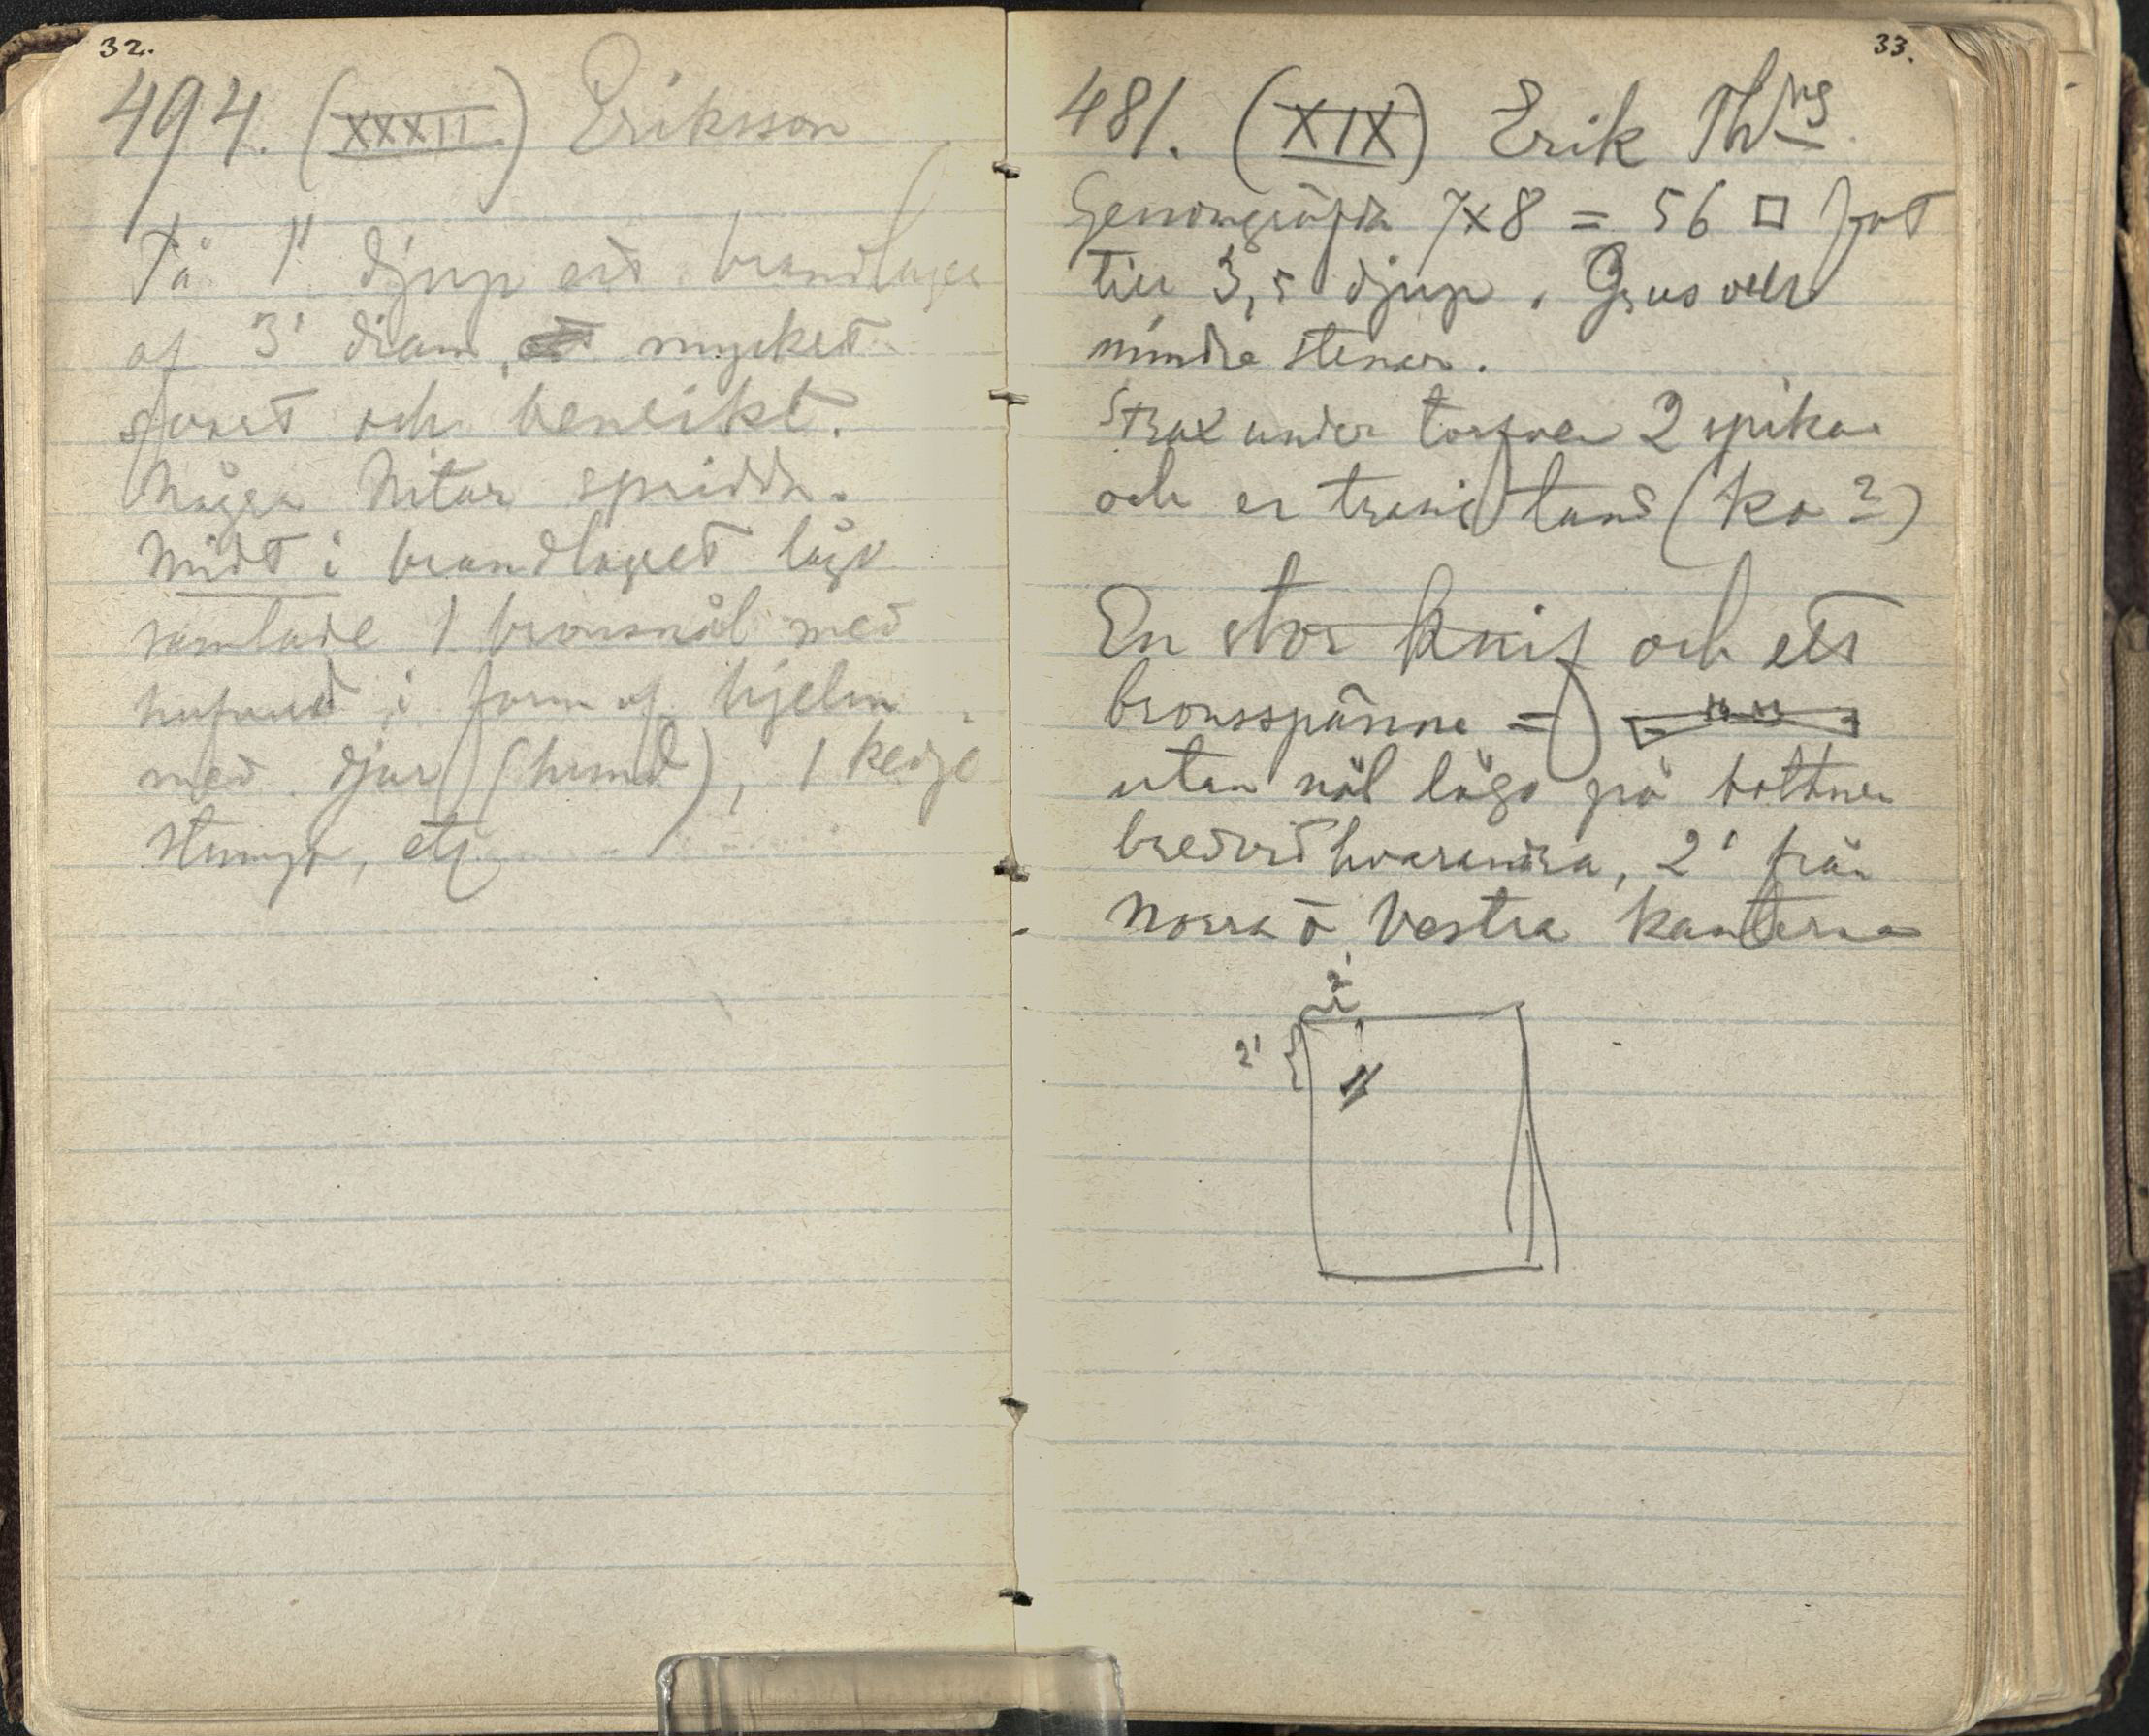 32.
494. (XXXII) Eriksson
På 1' djup ett brandlager
af 3' diam, mycket
svart och benrikt.
Några Nitar spridda.
Midt i brandlagret lågo
samlade 1 bronsnål med
hufvud i form af hjelm
med djur (hund), 1 kedje
stump, etc
33.
481. (XIX) Erik Th
Genomgräfda 7x8 = 56 □ fot
till 3,5 djup. Grus och
mindre stenar.
Strax under torfven 2 spikar
och en trasig tand (ko?)
En stor knif och ett
bronsspänne =
utan nål lågo på bottnen
bredvid hvarandra, 2' från
Norra o Vestra kanterna
2'
2'